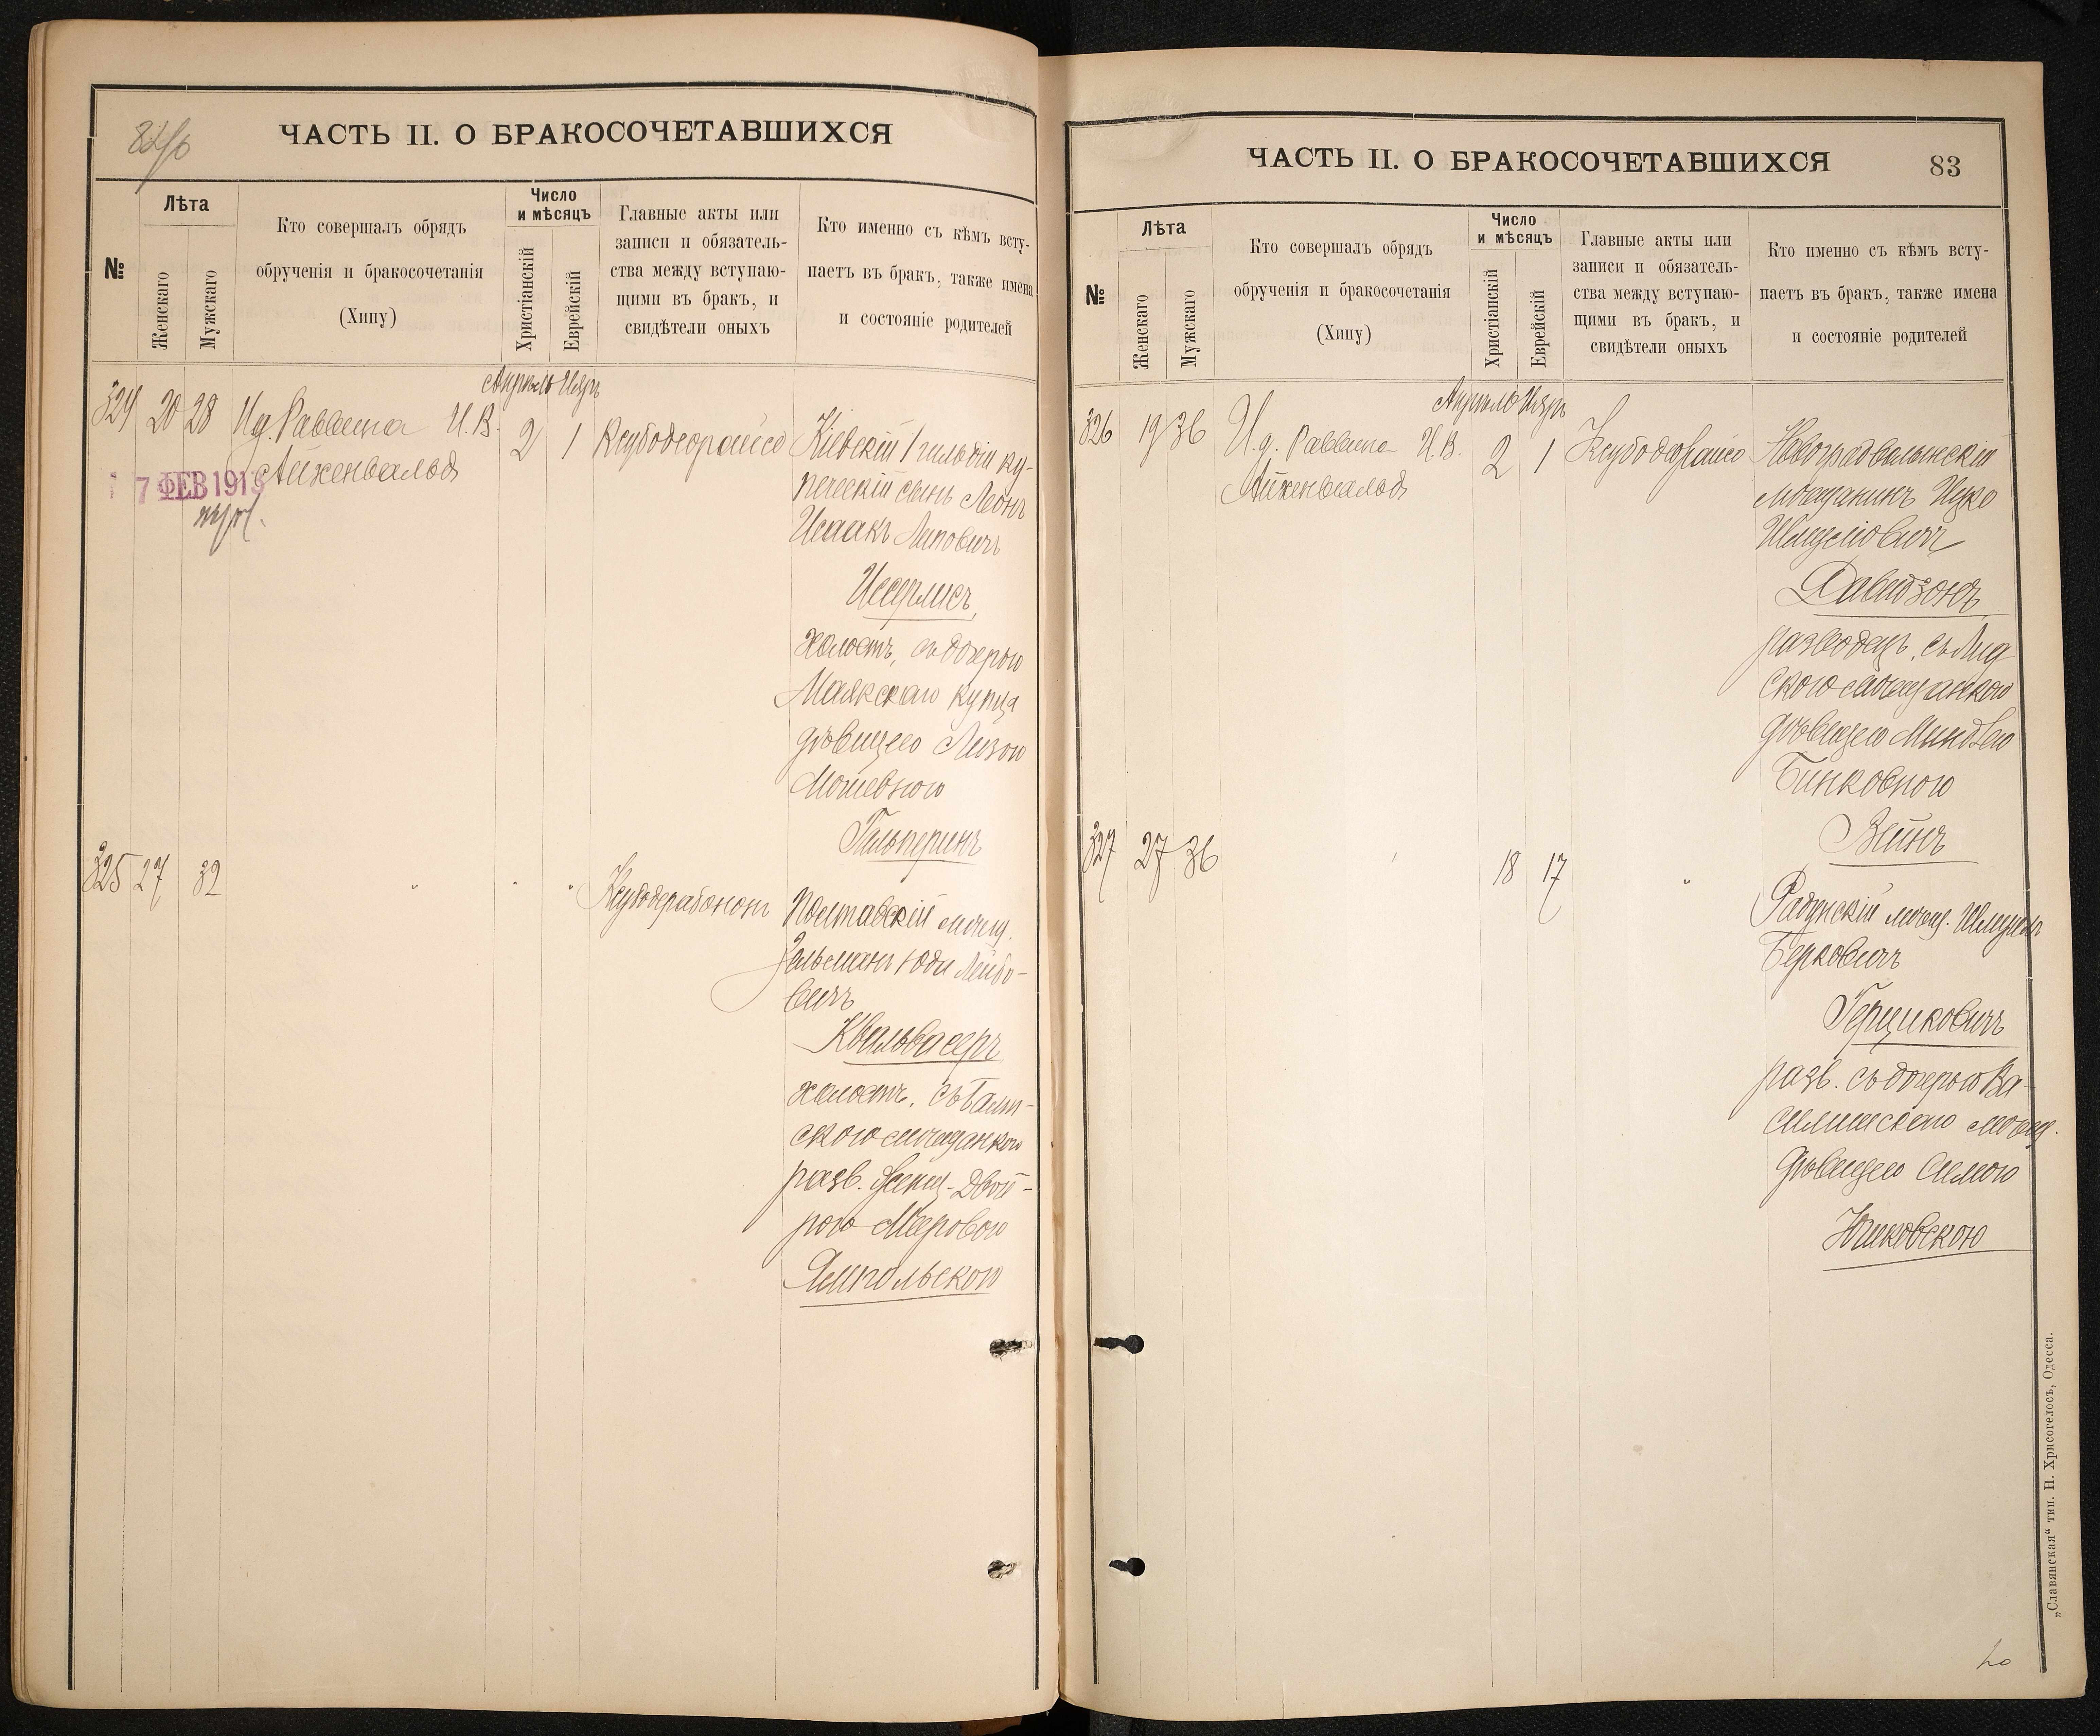 82об
ЧАСТЬ II. О БРАКОСОЧЕТАВШИХСЯ
№
Лѣта
Женскаго
Мужскаго
Кто совершалъ обрядъ
обрученія и бракосочетанія
(Хипу)
Число
и мѣсяцъ
Христіанскій
Еврейскій
Главные акты или
записи и обязатель-
ства между вступаю-
щими въ бракъ, и
свидѣтели оныхъ
Кто именно съ кѣмъ всту-
паетъ въ бракъ, также имена
и состояніе родителей
Апрѣль Иіяръ
324 20 28 И.д. Раввина И.В.
Айхенвальдъ
2 1
Ксубодеорайсо
17 ФЕВ 191
Кіевскій 1 гильдіи ку-
печескій сынъ Леонъ
Исаакъ Липовичъ
Иссерлисъ,
холостъ, съ дочерью
Маякскаго купца
дѣвицею Лизою
Мошевною
Гальперинъ
325 27 32 " " "
Ксубодерабонон
Полтавскій мѣщ.
Зельманъ Юда Лейбо-
вичъ
Квальвасеръ
холостъ, съ Балт-
скою мѣщанкою
разв. Двой-
рою Мееровою
Ямпольскою
ЧАСТЬ II. О БРАКОСОЧЕТАВШИХСЯ
83
№
Лѣта
Женскаго
Мужскаго
Кто совершалъ обрядъ
обрученія и бракосочетанія
(Хипу)
Число
и мѣсяцъ
Христіанскій
Еврейскій
Главные акты или
записи и обязатель-
ства между вступаю-
щими въ бракъ, и
свидѣтели оныхъ
Кто именно съ кѣмъ всту-
паетъ въ бракъ, также имена
и состояніе родителей
Апрѣль Иіяръ
326 19 36 И.д. Раввина И.В.
Айхенвальдъ
2 1
Ксубодеорайсо
Новоградволынскій
мѣщанинъ Ицко
Шмуйловичъ
Давидзонъ
разводецъ, съ Лид-
скою мѣщанкою
дѣвицею Миндлею
Бинковною
Вейнъ
327 27 36 " 18 17 "
Радунскій мѣщ. Шмуель
Берковичъ
Гершковичъ
разв. съ дочерью Ва-
силишскаго мѣщ.
дѣвицею Симою
Юшковскою
„Славянская“ тип. Н. Хрисогелосъ, Одесса.